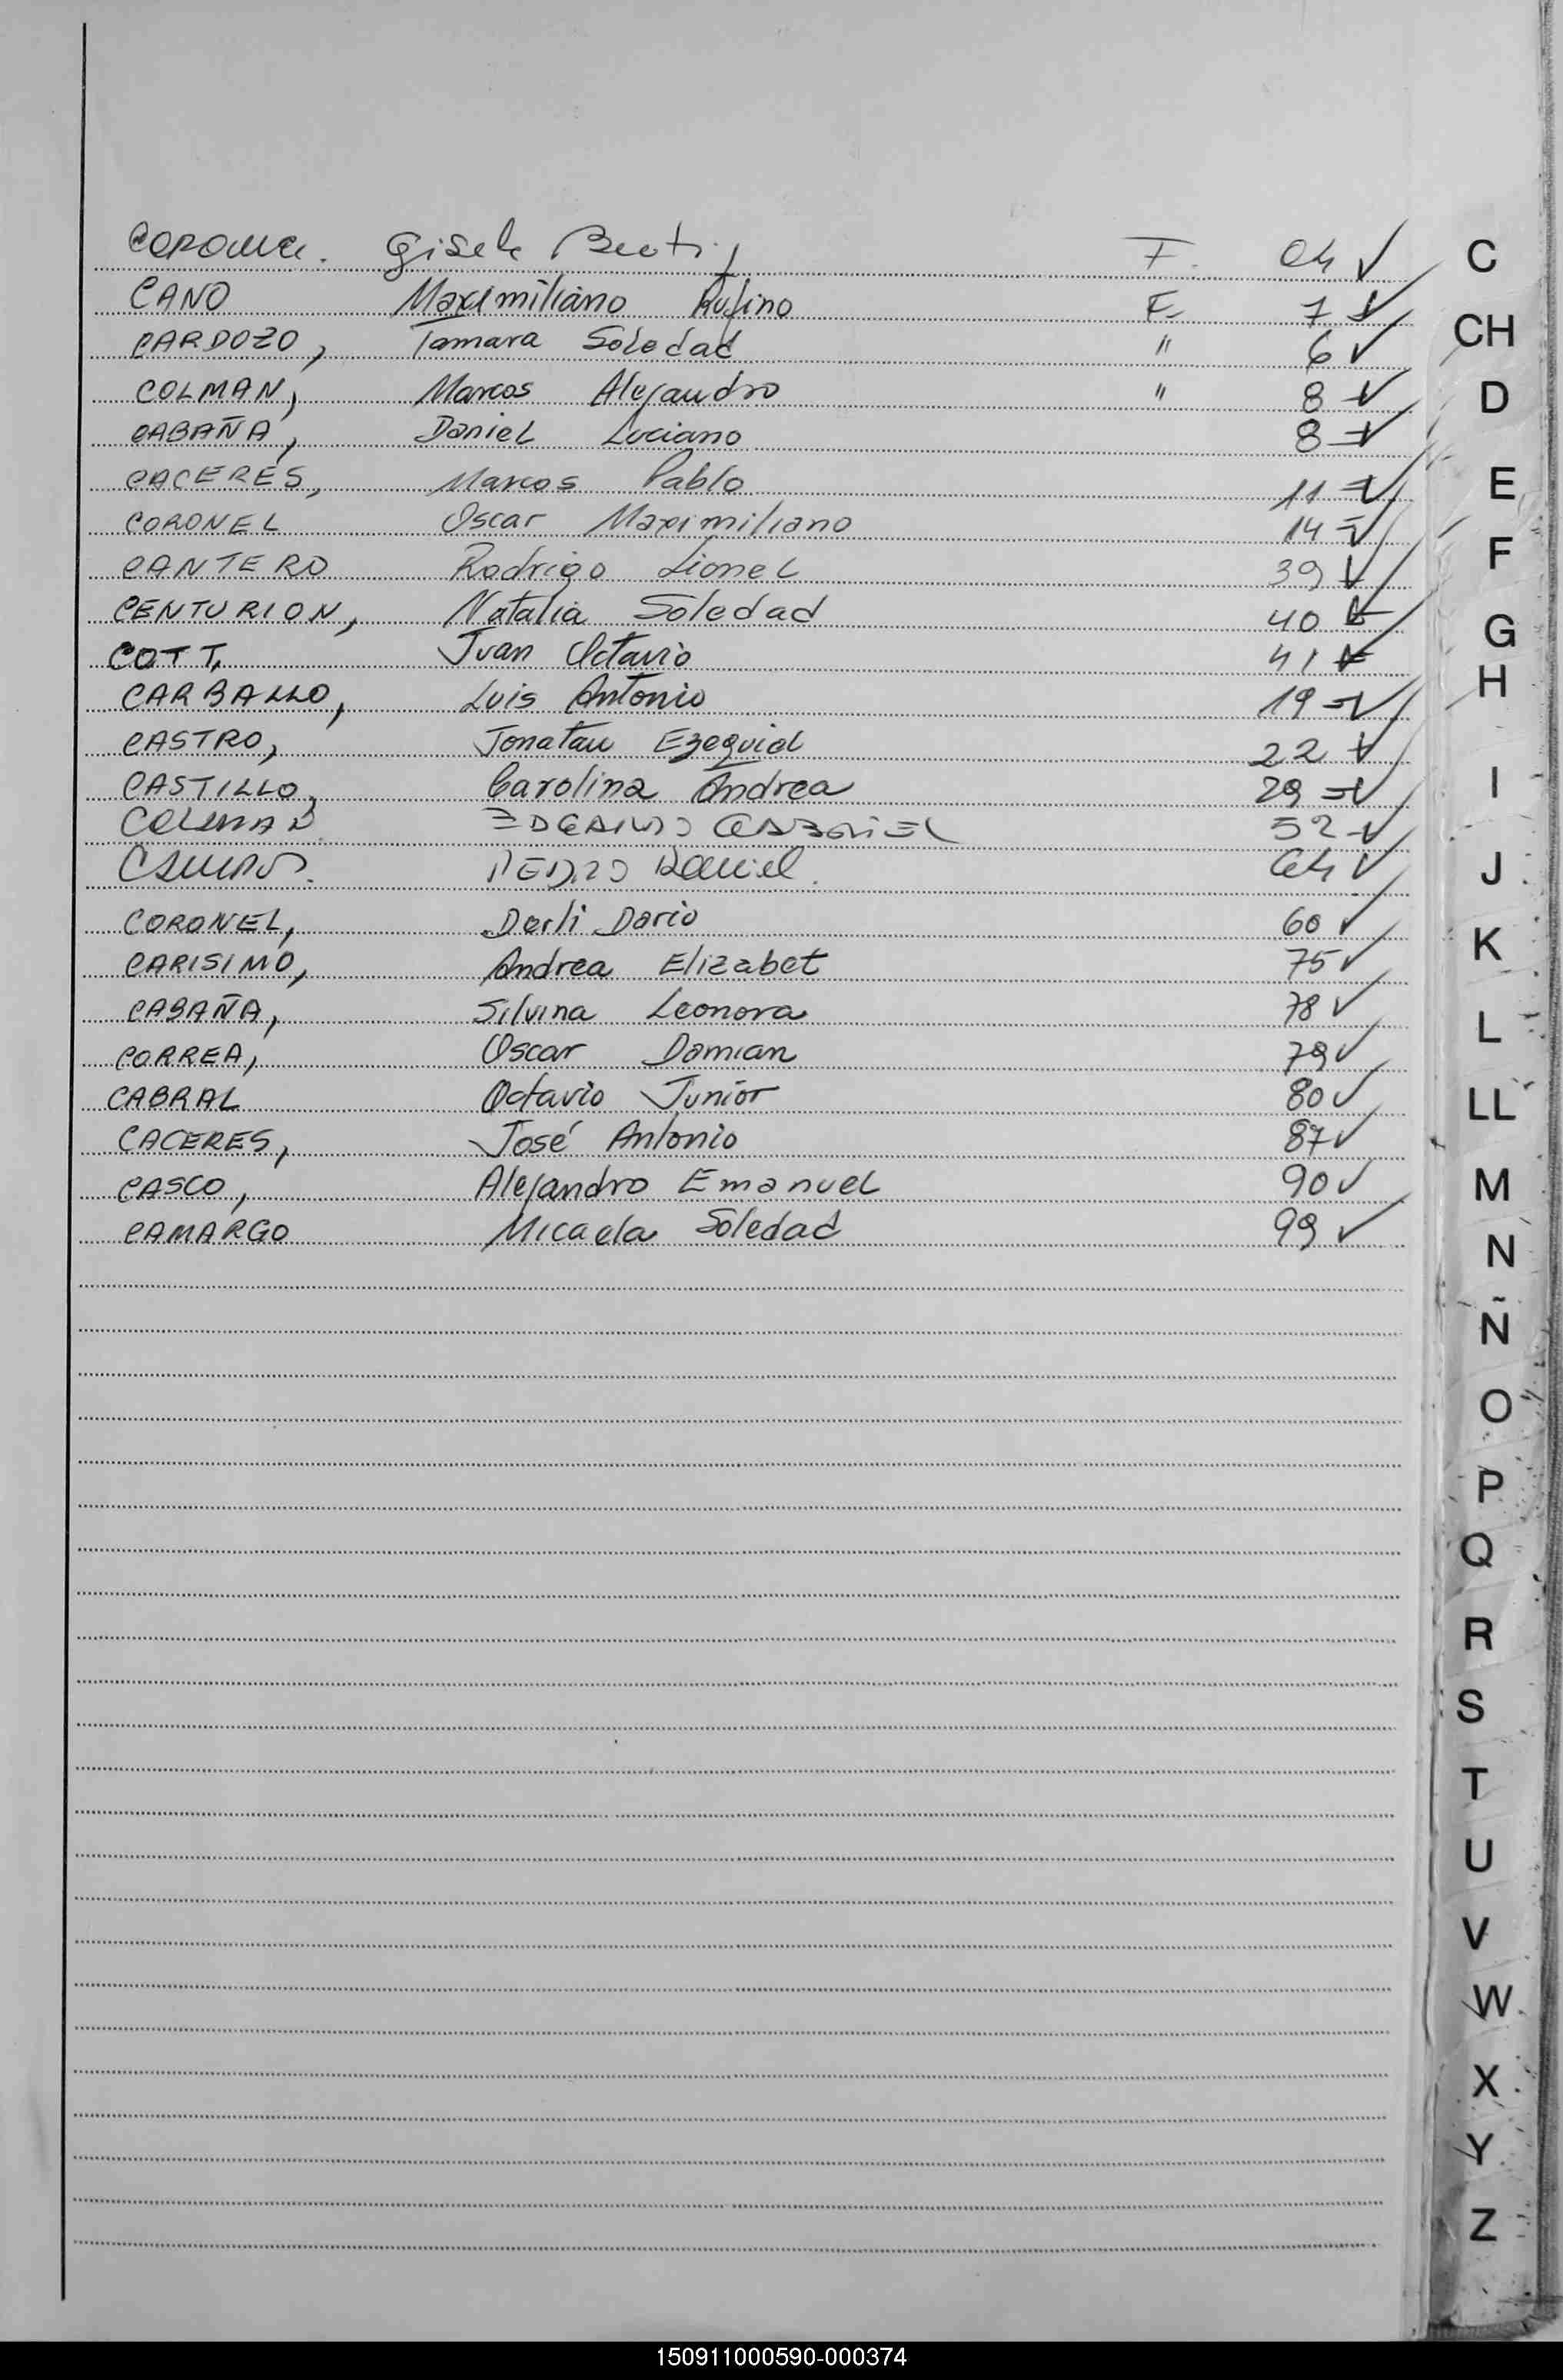 Gisela F. 04 ✓
CANO Maximiliano Rufino F. 7 ✓
CARDOZO, Tamara Soledad " 6 ✓
COLMAN, Marcos Alejandro " 8 ✓
CABAÑA, Daniel Luciano 8 ✓
CACERES, Marcos Pablo 11 ✓
CORONEL Oscar Maximiliano 14 ✓
CANTERO Rodrigo Lionel 39 ✓
CENTURION, Natalia Soledad 40 ✓
COTT, Juan Octavio 41 ✓
CARBALLO, Luis Antonio 19 ✓
CASTRO, Jonatan Ezequiel 22 ✓
CASTILLO, Carolina Andrea 29 ✓
COLMAN 52 ✓
PEDRO Daniel. 64 ✓
CORONEL, Derli Dario 60 ✓
CARISIMO, Andrea Elizabet 75 ✓
CABAÑA, Silvina Leonora 78 ✓
CORREA, Oscar Damian 79 ✓
CABRAL Octavio Junior 80 ✓
CACERES, José Antonio 87 ✓
CASCO, Alejandro Emanuel 90 ✓
CAMARGO Micaela Soledad 99 ✓
C
CH
D
E
F
G
H
I
J
K
L
LL
M
N
Ñ
O
P
Q
R
S
T
U
V
W
X
Y
Z
150911000590-000374